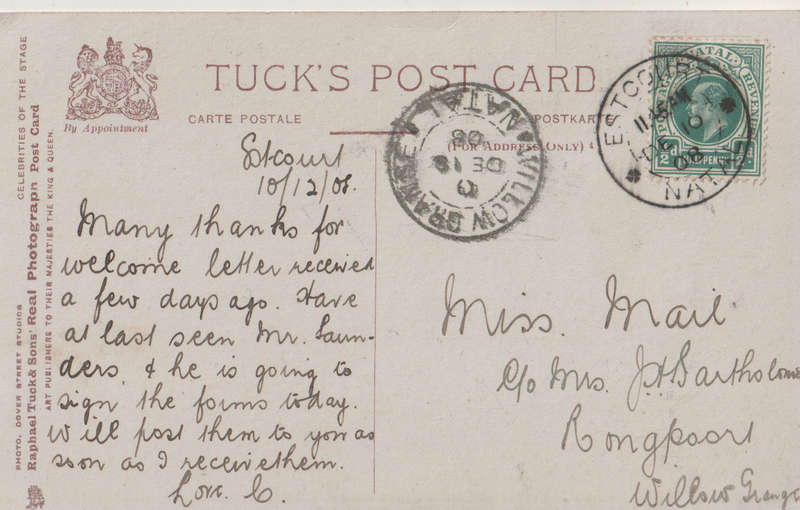 TUCK'S POST CARD
CARTE POSTALE
POSTKARTE
(FOR ADDRESS ONLY)
By Appointment
CELEBRITIES OF THE STAGE
PHOTO, DOVER STREET STUDIOS
Raphael Tuck & Sons' Real Photograph Post Card
ART PUBLISHERS TO THEIR MAJESTIES THE KING & QUEEN.
Estcourt
10/12/08.
Many thanks for
welcome letter received
a few days ago. Have
at last seen Mr. Saun-
ders, & he is going to
sign the forms today.
Will post them to you as
soon as I receive them.
Love. C.
WILLOW GRANGE
NATAL
DE 13
08
NATAL REVENUE
HALF PENNY
ESTCOURT
11 45 AM
DE 10
08
NATAL
Miss. Mail.
c/o Mrs. J.H Bartholome
Rongpoort
Willow Grange